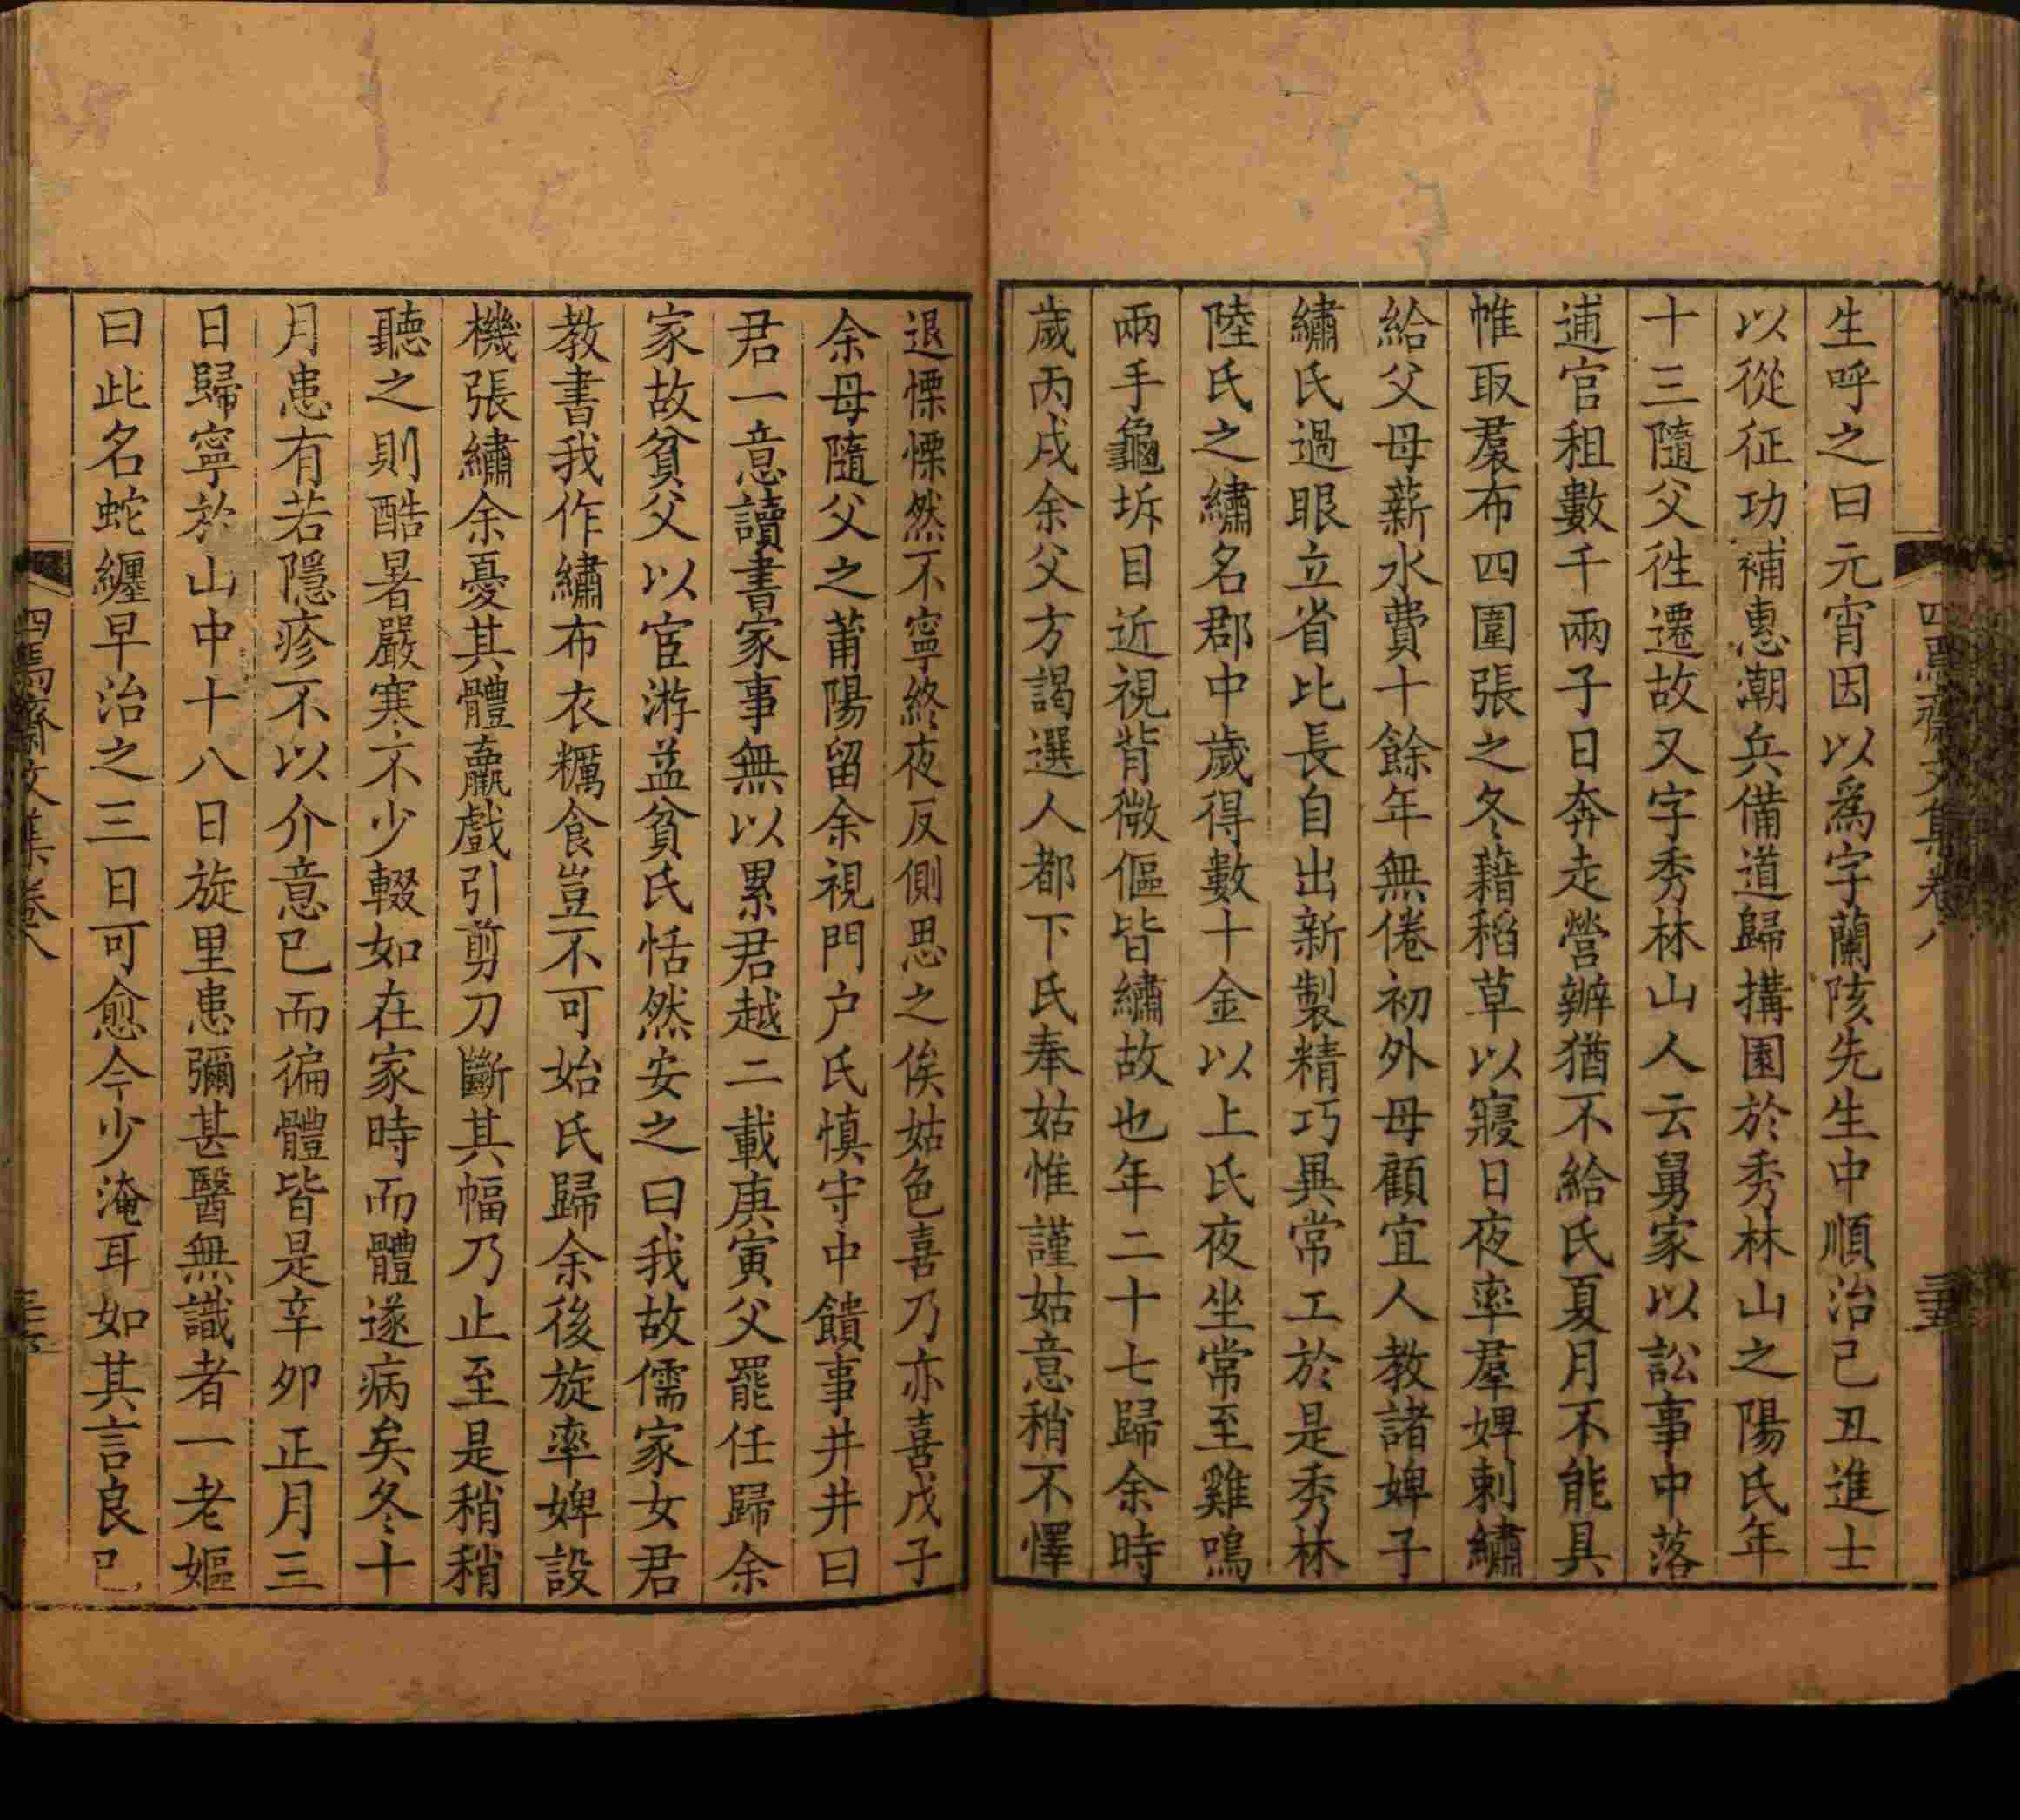 生呼之曰元宵因以爲字蘭陔先生中順治己丑進士
以從征功補惠潮兵備道歸搆園於秀林山之陽氏年
十三隨父徃遷故又字秀林山人云舅家以訟事中落
逋官租數千兩子日奔走營辦猶不給氏夏月不能具
帷取裠布四圍張之冬藉稻草以寢日夜率羣婢刺繡
給父母薪水費十餘年無倦初外母顧宜人教諸婢子
繡氏過眼立省比長自出新製精巧異常工於是秀林
陸氏之繡名郡中歲得數十金以上氏夜坐常至雞鳴
兩手龜坼目近視背微傴皆繡故也年二十七歸余時
歲丙戌余父方謁選人都下氏奉姑惟謹姑意稍不懌
退慄慄然不寧終夜反側思之俟姑色喜乃亦喜戊子
余母隨父之莆陽留余視門户氏慎守中饋事井井曰
君一意讀書家事無以累君越二載庚寅父罷任歸余
家故貧父以宦游益貧氏恬然安之曰我故儒家女君
教書我作繡布衣糲食豈不可始氏歸余後旋率婢設
機張繡余憂其體羸戲引剪刀斷其幅乃止至是稍稍
聽之則酷暑嚴寒不少輟如在家時而體遂病矣冬十
月患有若隱疹不以介意已而徧體皆是辛卯正月三
日歸寧於山中十八日旋里患彌甚醫無識者一老嫗
曰此名蛇纏早治之三日可愈今少淹耳如其言良已
四焉齋文集卷八